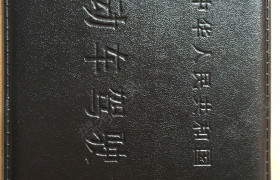 中华人民共和国
动车驾驶